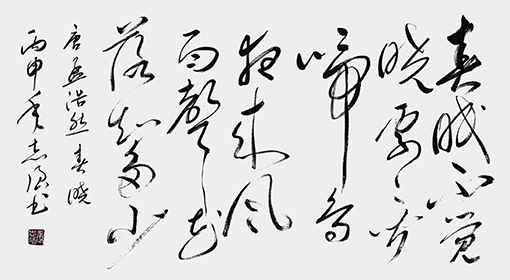 春眠不觉
晓处处闻
啼鸟
夜来风
雨声花
落知多少
唐孟浩然春晓
丙申年志强书